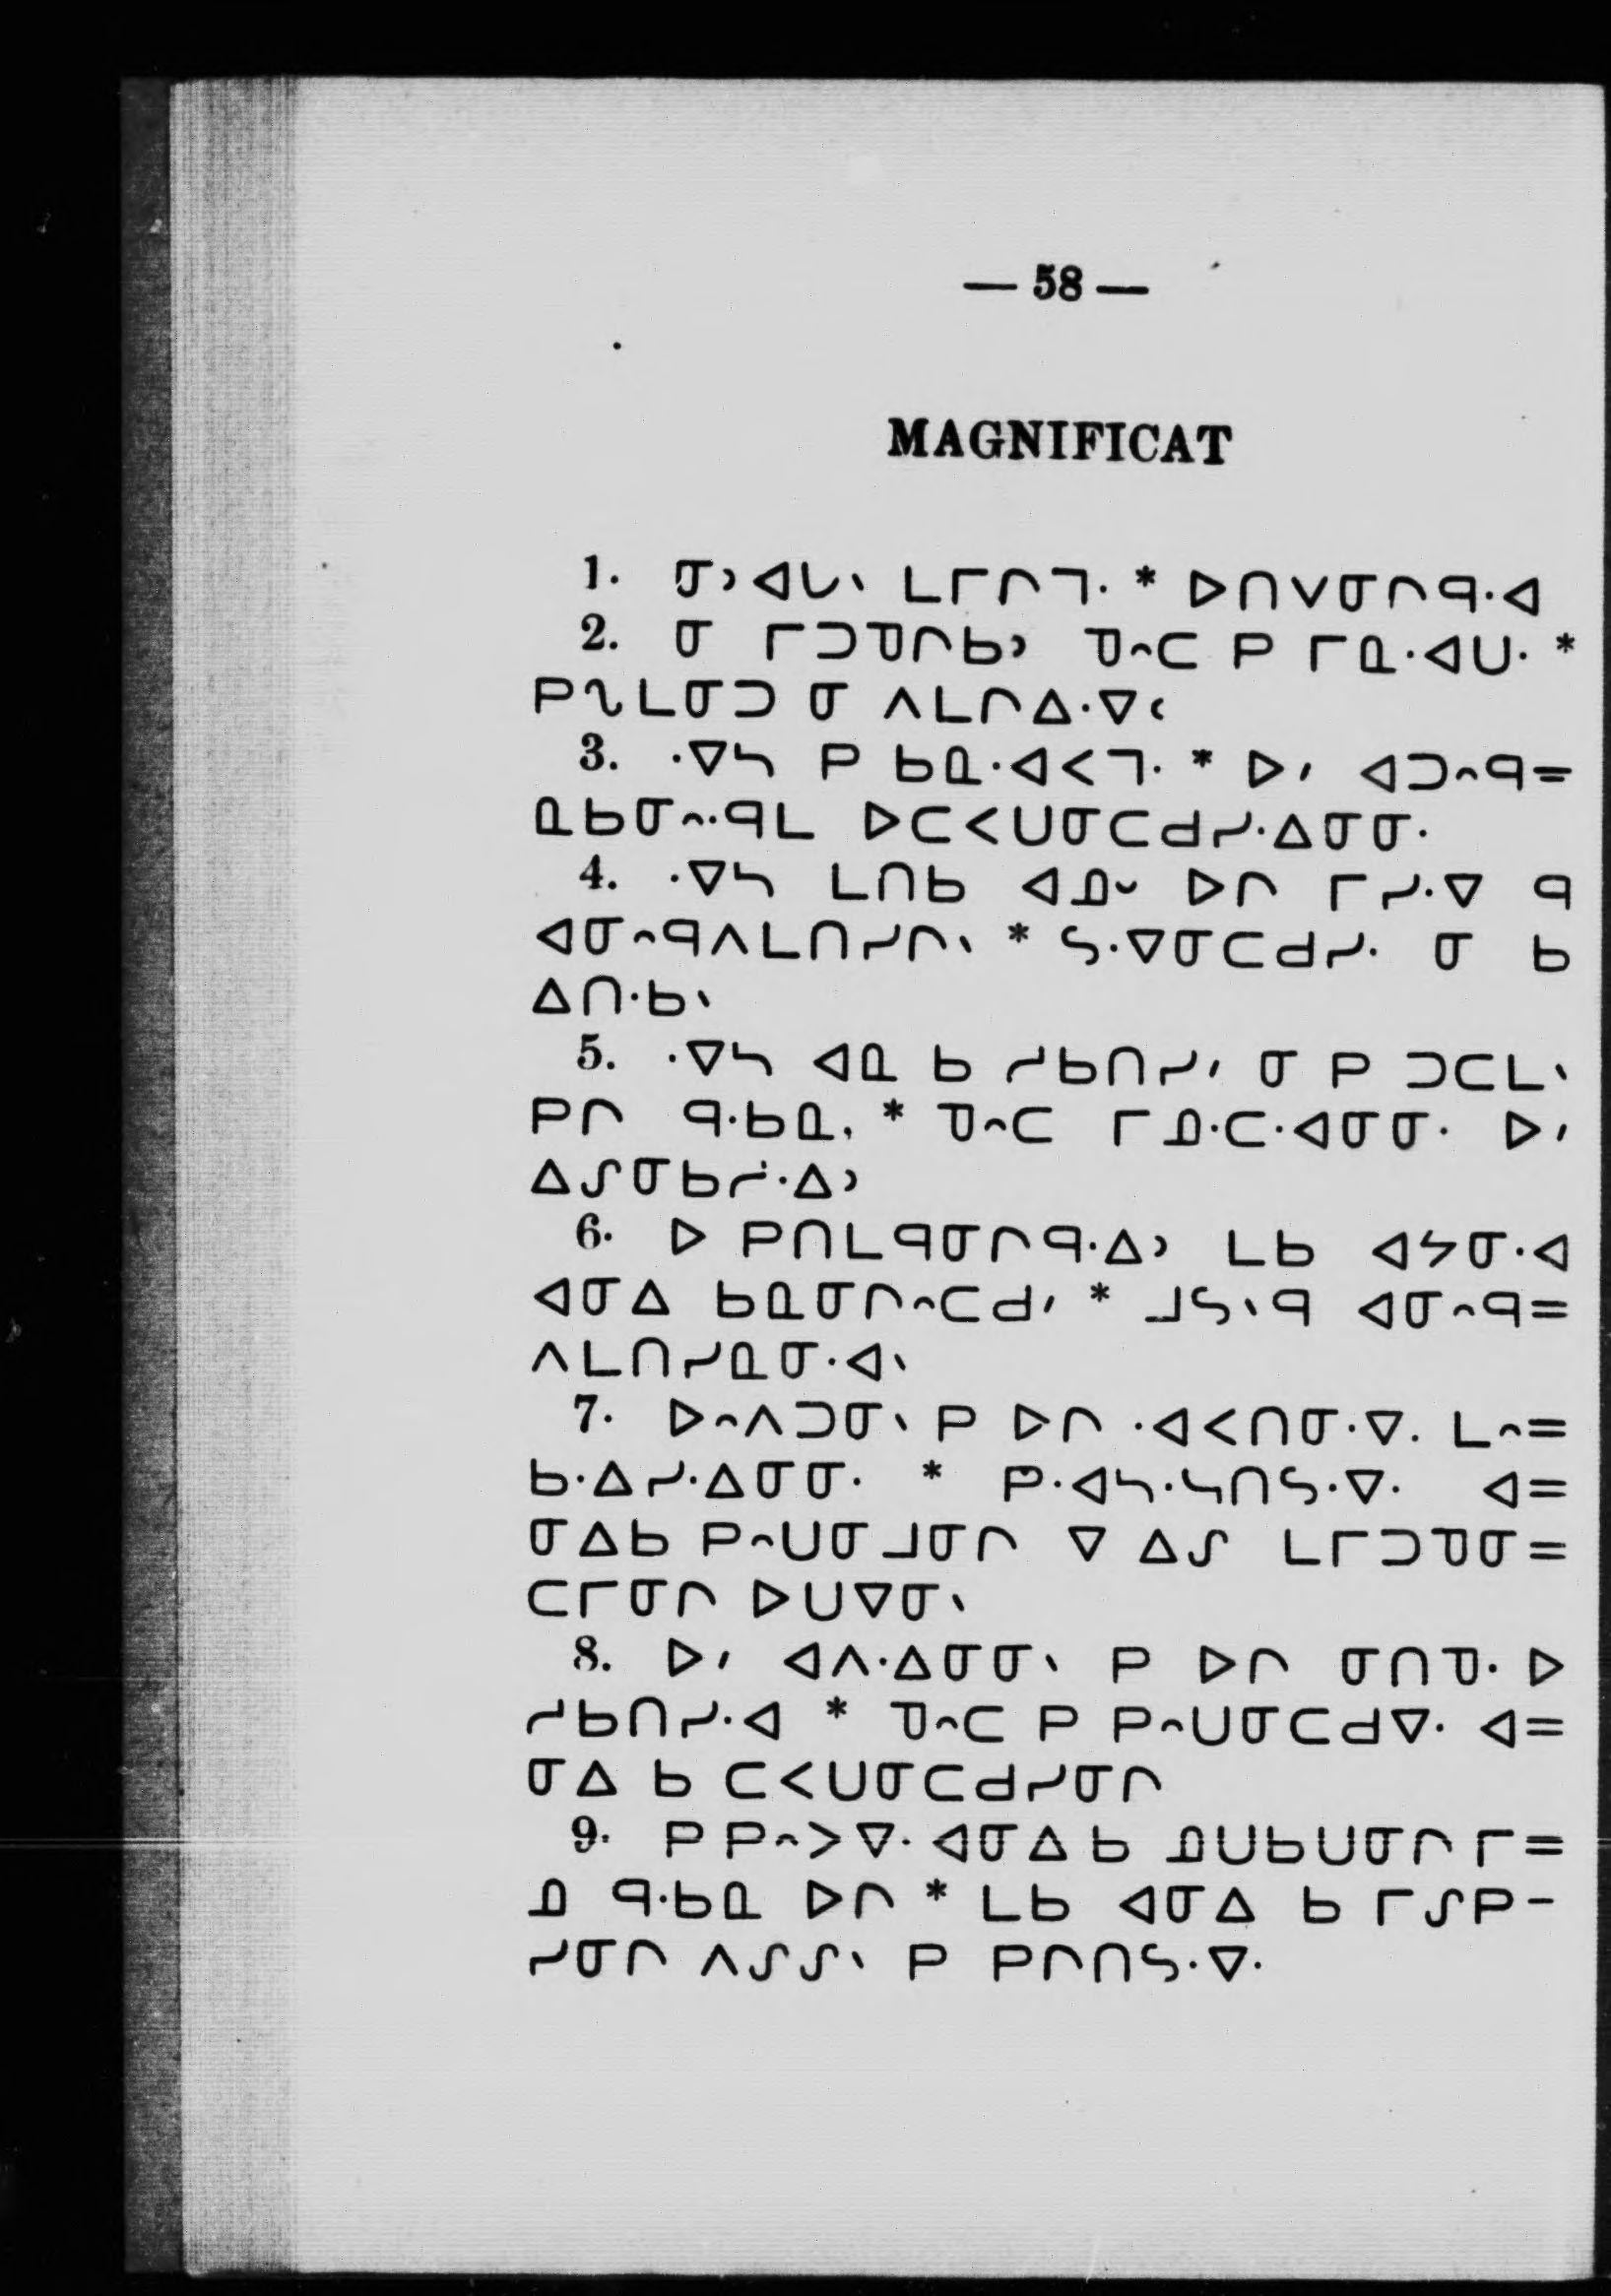 — 58 —
MAGNIFICAT
1. ᓂᐣᐊᒐᐠ ᒪᒥᒋᒣᐤ * ᐅᑎᐯᓂᒋᑫᐧᐊ
2. ᓂ ᒥᑐᑯᒋᑲᐣ ᑯᐢᑕ ᑭ ᒥᓇᐧᐊᑌᐤ *
ᑭᔐᒪᓂᑐ ᓂ ᐱᒪᒋᐃᐧᐁᑊ
3. ᐧᐁᓴ ᑭ ᑲᓇᐧᐊᐸᒣᐤ * ᐅᐟ ᐊᑐᐢᑫ=
ᓇᑲᓂᐢᐧᑫᒪ ᐅᑕᐸᑌᓂᑕᑯᓯᐧᐃᓂᓂᐤ
4. ᐧᐁᓴ ᒪᑎᑲ ᐊᓄᐨ ᐅᒋ ᒥᓯᐧᐁ ᑫ
ᐊᓂᐢᑫᐱᒪᑎᓯᒋᐠ * ᓴᐧᐁᓂᑕᑯᓯᐤ ᓂ ᑲ
ᐃᑎᐧᑲᐠ
5. ᐧᐁᓴ ᐊᓇ ᑲ ᓯᑲᑎᓯᐟ ᓂ ᑭ ᑐᑕᒪᐠ
ᑭᒋ ᑫᐧᑲᓇ, * ᑯᐢᑕ ᒥᓄᐧᑕᐧᐊᓂᓂᐤ ᐅᐟ
ᐃᔑᓂᑲᓯᐧᐃᐣ
6. ᐅ ᑭᑎᒪᑫᓂᒋᑫᐧᐃᐣ ᒪᑲ ᐊᔭᓂᐧᐊ
ᐊᓂᐃ ᑲᓇᓂᒋᐢᑕᑯᐟ * ᒧᓴᐠᑫ ᐊᓂᐢᑫ=
ᐱᒪᑎᓯᓇᓂᐧᐊᐠ
7. ᐅᐢᐱᑐᓂᐠ ᑭ ᐅᒋ ᐧᐊᐸᑎᓂᐧᐁ. ᒪᐢ=
ᑲᐧᐃᓯᐧᐃᓂᓂᐤ * ᑭᐧᐊᓴᐧᓭᑎᓴᐧᐁᐤ ᐊ=
ᓂᐃᑲ ᑭᐢᑌᓂᒧᓂᒋ ᐁ ᐃᔑ ᒪᒥᑐᑯᓂ=
ᑕᒥᓂᒋ ᐅᑌᐁᓂᐠ
8. ᐅᐟ ᐊᐱᐧᐃᓂᓂᐠ ᑭ ᐅᒋ ᓂᑎᑯᐤ ᐅ
ᓯᑲᑎᓯᐧᐊ * ᑯᐢᑕ ᑭ ᑭᐢᑌᓂᑕᑯᐁᐤ ᐊ=
ᓂᐃ ᑲ ᑕᐸᑌᓂᑕᑯᓯᓂᒋ
9. ᑭ ᑭᐢᐳᐁᐤ ᐊᓂᐃ ᑲ ᓄᑌᑲᑌᓂᒋ ᒥ=
ᓄ ᑫᐧᑲᓇ ᐅᒋ * ᒪᑲ ᐊᓂᐃ ᑲ ᒥᔑᑭ-
ᓯᓂᒋ ᐱᔑᔑᐠ ᑭ ᑭᒋᑎᓴᐧᐁᐤ